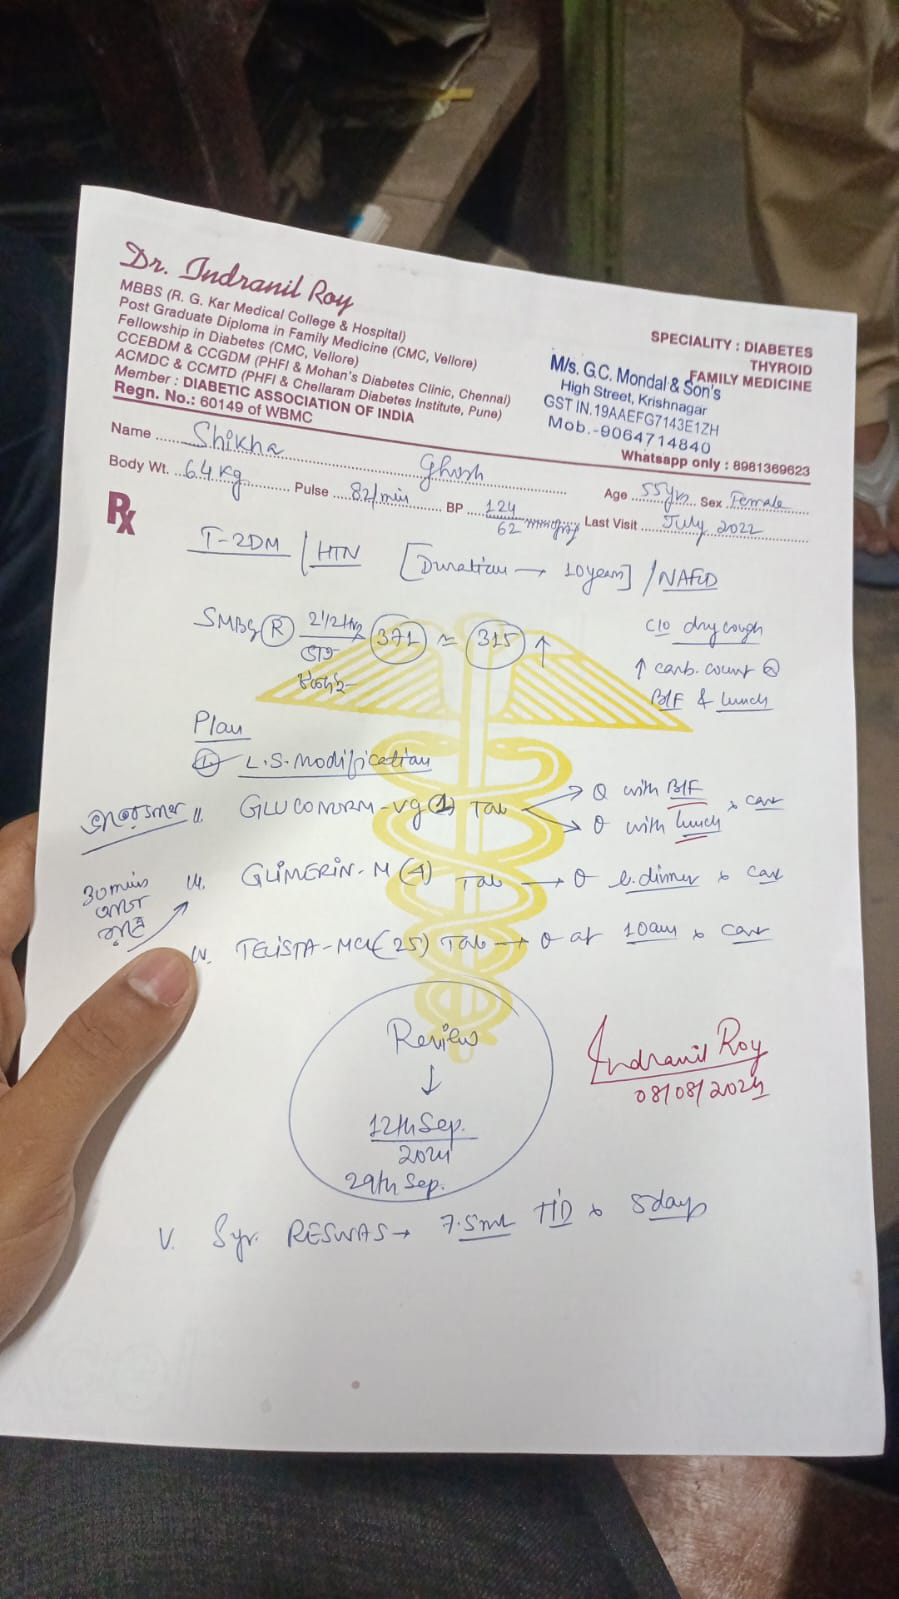 Dr. Indranil Roy
MBBS (R. G. Kar Medical College & Hospital)
Post Graduate Diploma in Family Medicine (CMC, Vellore)
Fellowship in Diabetes (CMC, Vellore)
CCEBDM & CCGDM (PHFI & Mohan's Diabetes Clinic, Chennai)
ACMDC & CCMTD (PHFI & Chellaram Diabetes Institute, Pune)
Member : DIABETIC ASSOCIATION OF INDIA
Regn. No.: 60149 of WBMC
SPECIALITY : DIABETES
THYROID
FAMILY MEDICINE
M/s. G.C. Mondal & Son's
High Street, Krishnagar
GST IN.19AAEFG7143E1ZH
Mob.-9064714840
Whatsapp only : 8981369623
Name Shikha Ghosh Age 55yrs Sex Female
Body Wt. 64 kg Pulse 82/min BP 124/62 mmofHg Last Visit July 2022
Rx
T-2DM / HTN [Duration → 10years] / NAFLD
SMBG (R) 2½hrs 371 ≈ 315 ↑
c/o dry cough
↑ carb. count
B/F & lunch
Plan
L.S. Modification
ii. GLUCONORM-VG Tab with B/F
with lunch
30 mins আগে
iii. GLIMERIN-M Tab → dinner
iv. (25) Tab → at 10am
Review
↓
12th Sep.
2024
29th Sep.
Indranil Roy
08/08/2024
V. Syr. RESWAS → 7.5ml TID x 5days